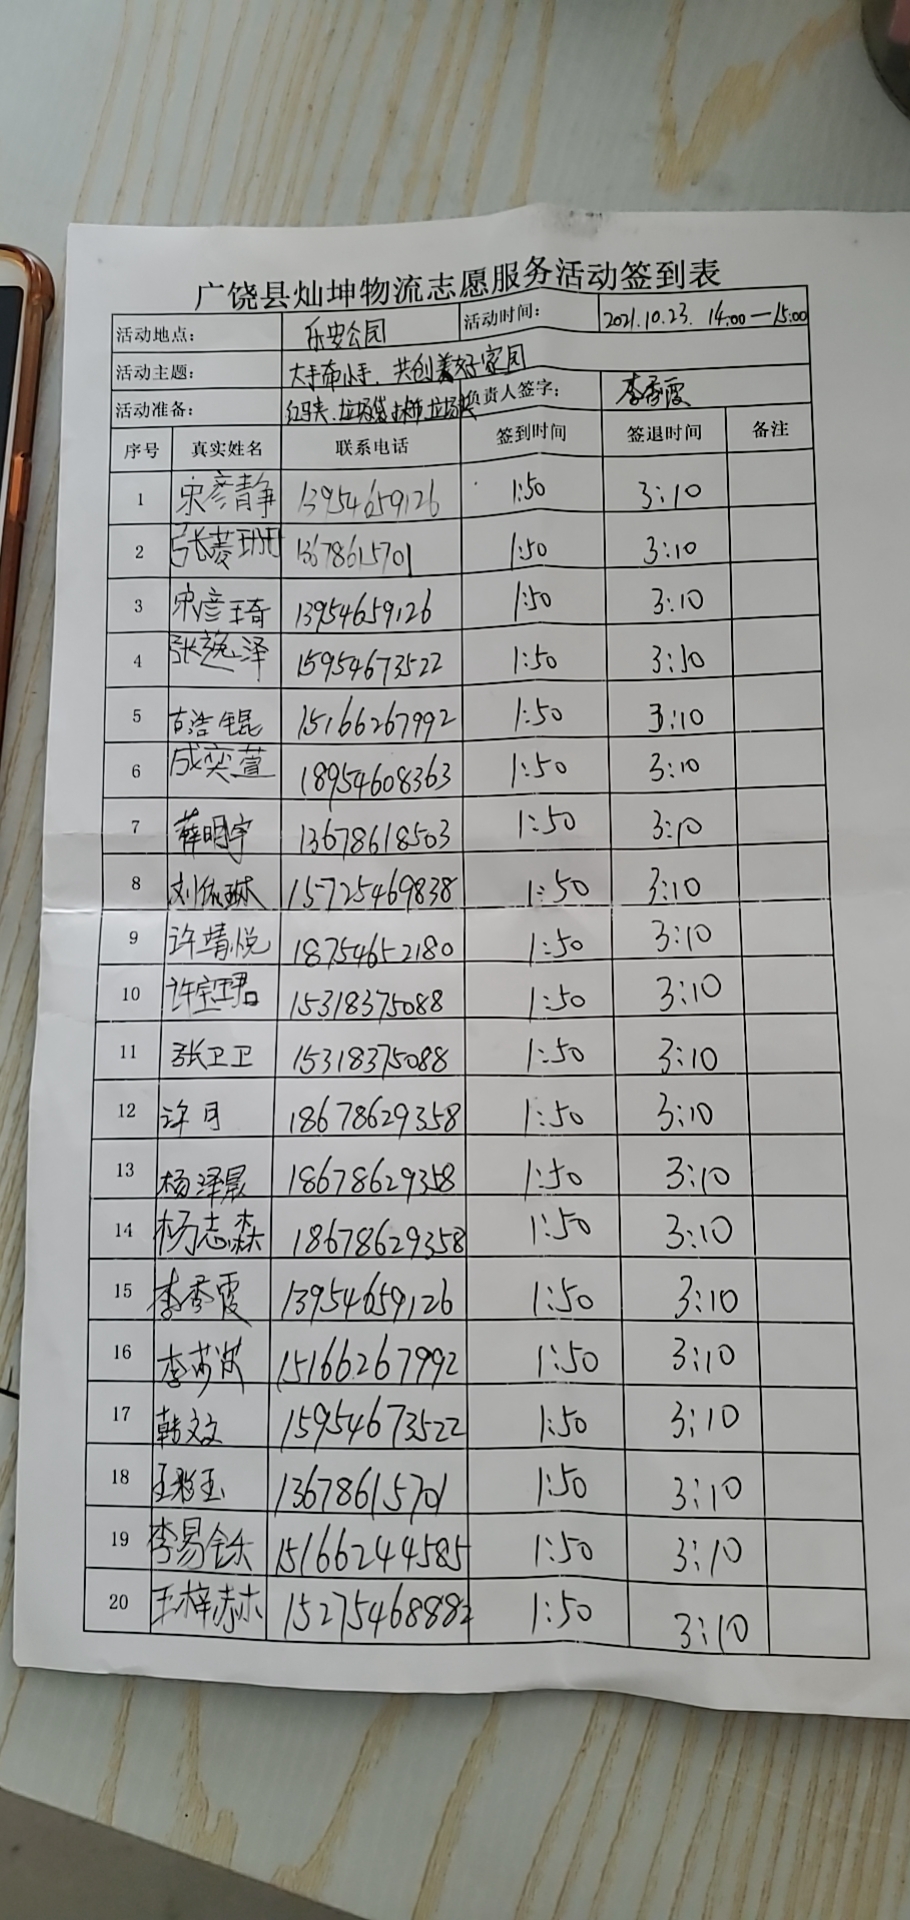 广饶县灿坤物流志愿服务活动签到表
活动地点： 乐安公园 活动时间： 2021.10.23. 14:00—15:00
活动主题： 大手牵小手、共创美好家园
活动准备： 红马夹、垃圾袋 垃圾 负责人签字： 李秀霞
序号 真实姓名 联系电话 签到时间 签退时间 备注
1 宋彦静 13954659126 1:50 3:10
2 张菱珊 13678615701 1:50 3:10
3 宋彦琦 13954659126 1:50 3:10
4 张逸泽 15954673522 1:50 3:10
5 古浩锟 15166267992 1:50 3:10
6 成奕萱 18954608363 1:50 3:10
7 薛明宇 13678618503 1:50 3:10
8 刘依琳 15725469838 1:50 3:10
9 许靖悦 18754652180 1:50 3:10
10 许宝珺 15318375088 1:50 3:10
11 张卫卫 15318375088 1:50 3:10
12 许月 18678629358 1:50 3:10
13 杨泽晨 18678629358 1:50 3:10
14 杨志森 18678629358 1:50 3:10
15 李秀霞 13954659126 1:50 3:10
16 李 15166267992 1:50 3:10
17 韩文文 15954673522 1:50 3:10
18 王彩玉 13678615701 1:50 3:10
19 李易铄 15166244585 1:50 3:10
20 王梓赫 15275468882 1:50 3:10